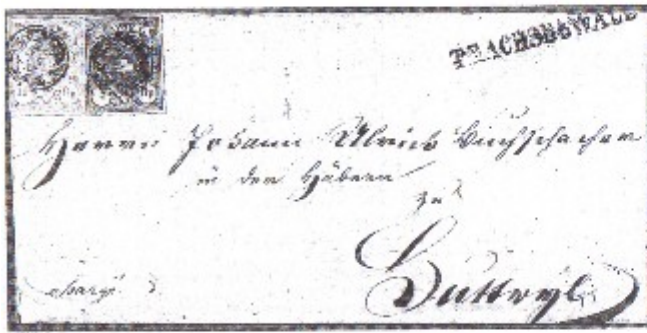 TRACHSELWALD
Herrn Johann Ulrich Buchschacher
in den Häbern
zu
Huttwyl
chargé